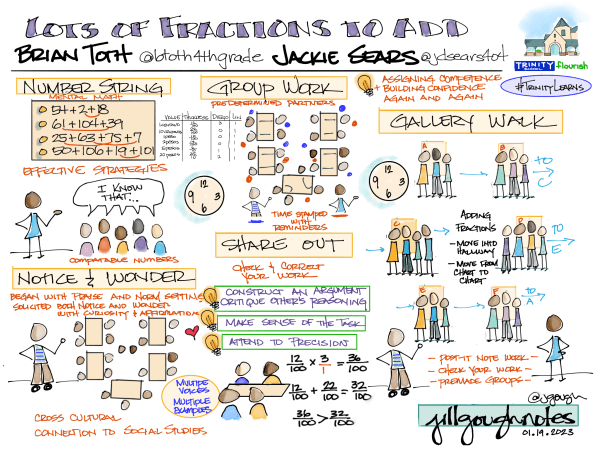 LOTS OF FRACTIONS TO ADD
BRIAN TOTH @btoth4thgrade JACKIE SEARS @jdsears4ot
TRINITY
SCHOOL
flourish
#TRINITYLEARNS
NUMBER STRING
MENTAL MATH
54+2+18
61+104+39
25+63+75+7
50+106+19+101
EFFECTIVE STRATEGIES
I KNOW
THAT...
COMPATIBLE NUMBERS
GROUP WORK
PREDETERMINED PARTNERS
12
9 3
6
TIME STAMPED
WITH
REMINDERS
ASSIGNING COMPETENCE +
BUILDING CONFIDENCE
AGAIN AND AGAIN
GALLERY WALK
A
B
→TO
C
C
ADDING
FRACTIONS
- MOVE INTO
HALLWAY
- MOVE FROM
CHART TO
CHART
D
→TO
E
E
F
→TO
A
- POST-IT NOTE WORK -
- CHECK YOUR WORK -
- PREMADE GROUPS -
NOTICE & WONDER
BEGAN WITH PRAISE AND NORM SETTING
SOLICITED BOTH NOTICE AND WONDER
WITH CURIOSITY & AFFIRMATION
CROSS CULTURAL
CONNECTION TO SOCIAL STUDIES
MULTIPLE
VOICES
MULTIPLE
EXAMPLES
SHARE OUT
CHECK & CORRECT
YOUR WORK
CONSTRUCT AN ARGUMENT
CRITIQUE OTHER'S REASONING
MAKE SENSE OF THE TASK
ATTEND TO PRECISION
12/100 × 3/1 = 36/100
12/100 + 22/100 = 32/100
36/100 > 32/100
@jgough
jillgoughnotes
01.19.2023